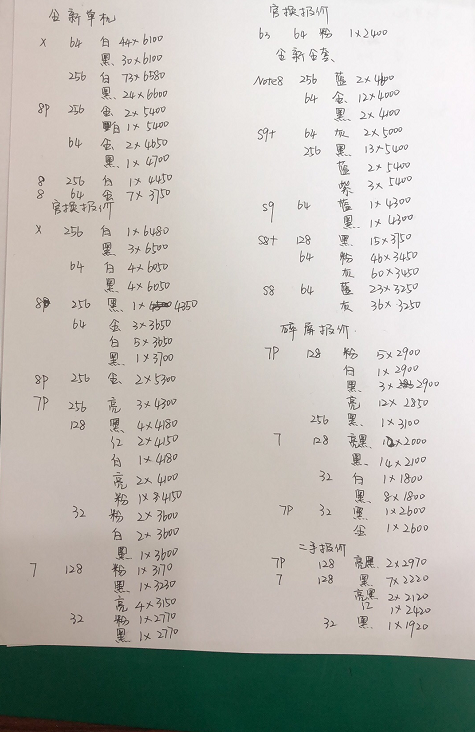 全新单机
X 64 白 44×6100
黑 30×6100
256 白 73×6580
黑 24×6600
8P 256 金 2×5400
白 1×5400
64 金 2×4650
黑 1×4700
8 256 白 1×4450
8 64 金 7×3750
官换报价
X 256 白 1×6480
黑 3×6500
64 白 4×6050
黑 4×6050
8P 256 黑 1×4350
64 金 3×3650
白 5×3650
黑 1×3700
8P 256 金 2×5300
7P 256 亮 3×4300
128 黑 4×4180
红 2×4150
白 1×4180
亮 2×4100
粉 1×4150
32 粉 2×3600
白 2×3600
黑 1×3600
7 128 粉 1×3170
黑 1×3230
亮 4×3150
32 粉 1×2770
黑 1×2770
官换报价
6s 64 粉 1×2400
全新全套
Note8 256 蓝 2×4600
64 金 12×4000
黑 2×4100
S9+ 64 灰 2×5000
256 黑 13×5400
蓝 2×5400
紫 3×5400
S9 64 蓝 1×4300
黑 1×4300
S8+ 128 黑 15×3750
64 粉 46×3450
灰 60×3450
S8 64 蓝 23×3250
灰 36×3250
碎屏报价
7P 128 粉 5×2900
白 1×2900
黑 3×2900
亮 12×2850
256 黑 1×3100
7 128 亮黑 12×2000
黑 14×2100
32 白 1×1800
黑 8×1800
7P 32 黑 1×2600
金 1×2600
二手报价
7P 128 亮黑 2×2970
7 128 黑 7×2220
亮黑 2×2120
红 1×2420
32 黑 1×1920